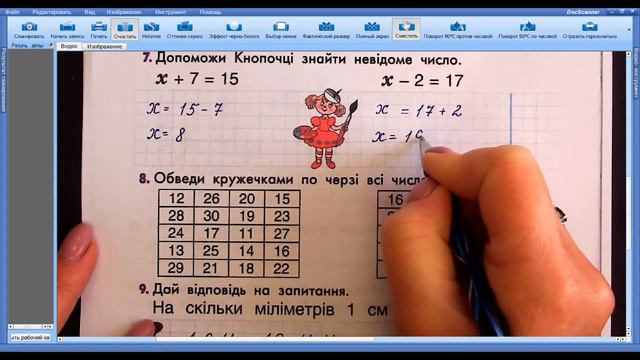 Файл Редактировать Вид Изображение Инструмент Помощь DocScanner
Сканировать Начать запись Печать Очистить Негатив Оттенки серого Эффект черно-белого Выбор окном Фактический размер Полный экран Сместить Поворот 90°C против часовой Поворот 90°C по часовой Отразить горизонтально
Видео Изображение
7. Допоможи Кнопочці знайти невідоме число.
x + 7 = 15 x − 2 = 17
x = 15 − 7 x = 17 + 2
x = 8 x = 19
8. Обведи кружечками по черзі всі числ
12 26 20 15 16
28 30 19 23
24 17 11 27
13 25 14 16
29 21 18 22
9. Дай відповідь на запитання.
На скільки міліметрів 1 см